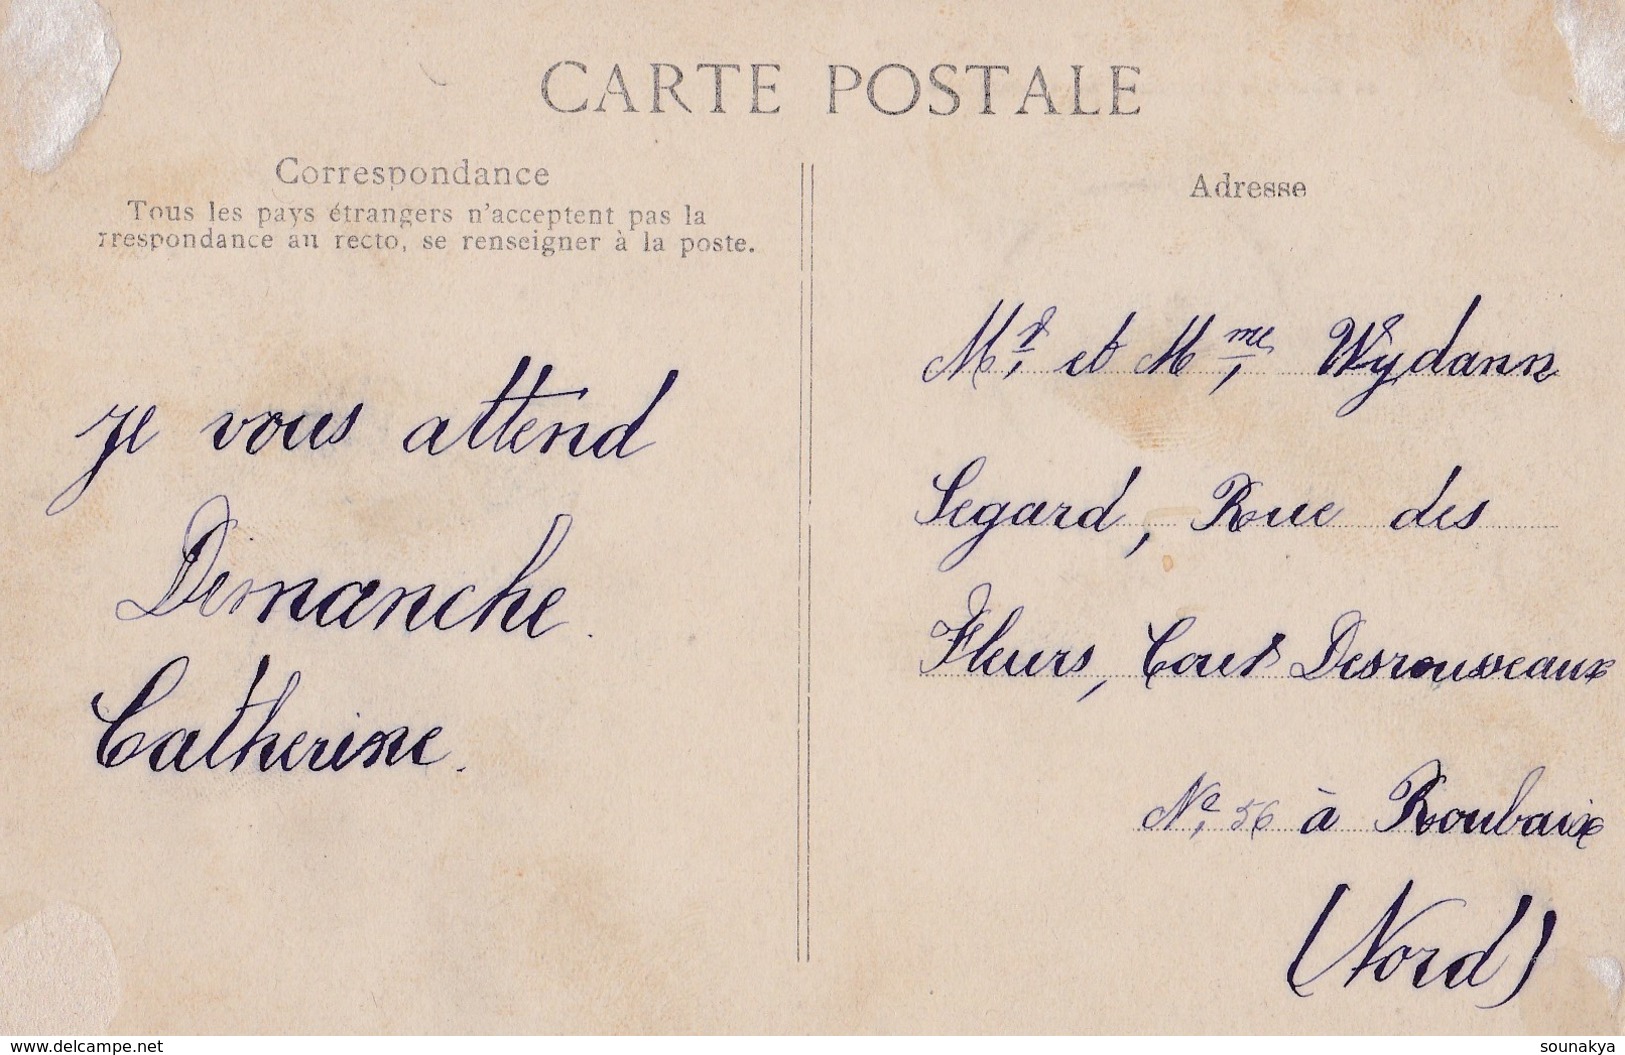 CARTE POSTALE
Correspondance
Tous les pays étrangers n'acceptent pas la
rrespondance au recto, se renseigner à la poste.
je vous attend
Dimanche.
Catherine.
Adresse
Mr. et Mme, Wydann
Segard, Rue des
Fleurs, Cour Desrousseaux
No. 56 à Roubaix
(Nord)
www.delcampe.net
sounakya